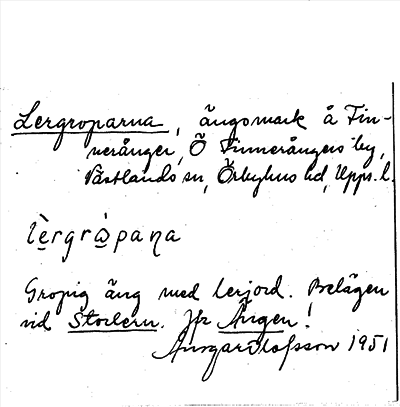 Lergroparna, ängsmark å Fin-
nerånger, Ö Finnerångers by,
Västlands sn, Örbyhus hd, Upps. l.
lèrgrɷ̀paṇa
Gropig äng med lerjord. Belägen
vid Storlern. Jfr Ängen!
Ansgar Olofsson 1951